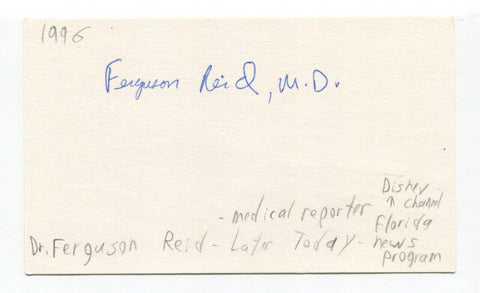 1996
Ferguson Reid, M.D.
Disney
↑ channel
- medical reporter Florida
Dr. Ferguson Reid - Later Today - news
program